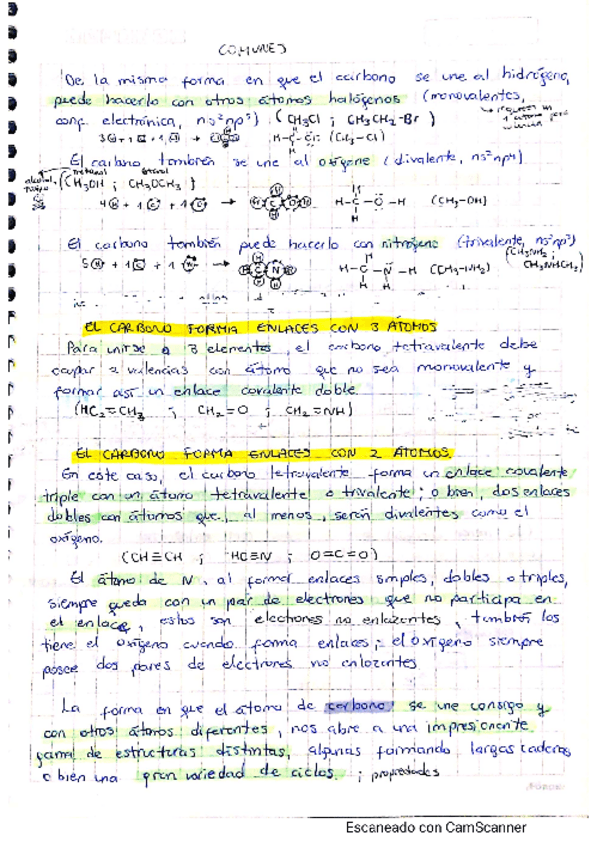 COMUNES
De la misma forma en que el carbono se une al hidrógeno,
puede hacerlo con otros átomos halógenos (monovalentes,
conf. electrónica, ns²np⁵). (CH₃Cl ; CH₃CH₂-Br)
requieren un
1 átomo para
3 H + 1 C + 1 Cl → H-C-Cl: (CH₃-Cl)
El carbono también se une al oxígeno (divalente, ns²np⁴)
metanol
alcohol (CH₃OH ; CH₃OCH₃)
4 H + 1 C + 1 O → H-C-O-H (CH₃-OH)
El carbono también puede hacerlo con nitrógeno (trivalente, ns²np³)
(CH₃NH₂ ;
CH₃NHCH₃)
5 H + 1 C + 1 N → H-C-N-H (CH₃-NH₂)
EL CARBONO FORMA ENLACES CON 3 ÁTOMOS
Para unirse a 3 elementos, el carbono tetravalente debe
ocupar 2 valencias con átomo que no sea monovalente y
formar así un enlace covalente doble.
(HC₂=CH₃ ; CH₂=O ; CH₂=NH)
EL CARBONO FORMA ENLACES CON 2 ÁTOMOS.
En este caso, el carbono tetravalente forma un enlace covalente
triple con un átomo tetravalente o trivalente; o bien, dos enlaces
dobles con átomos que, al menos, serán divalentes como el
oxígeno.
(CH≡CH ; HC≡N ; O=C=O)
El átomo de N, al formar enlaces simples, dobles o triples,
siempre queda con un par de electrones que no participa en
el enlace, estos son electrones no enlazantes, también los
tiene el oxígeno cuando forma enlaces; el oxígeno siempre
posee dos pares de electrones no enlazantes
La forma en que el átomo de carbono se une consigo y
con otros átomos diferentes, nos abre a una impresionante
gama de estructuras distintas, algunas formando largas cadenas
o bien una gran variedad de ciclos. ; propiedades
Escaneado con CamScanner